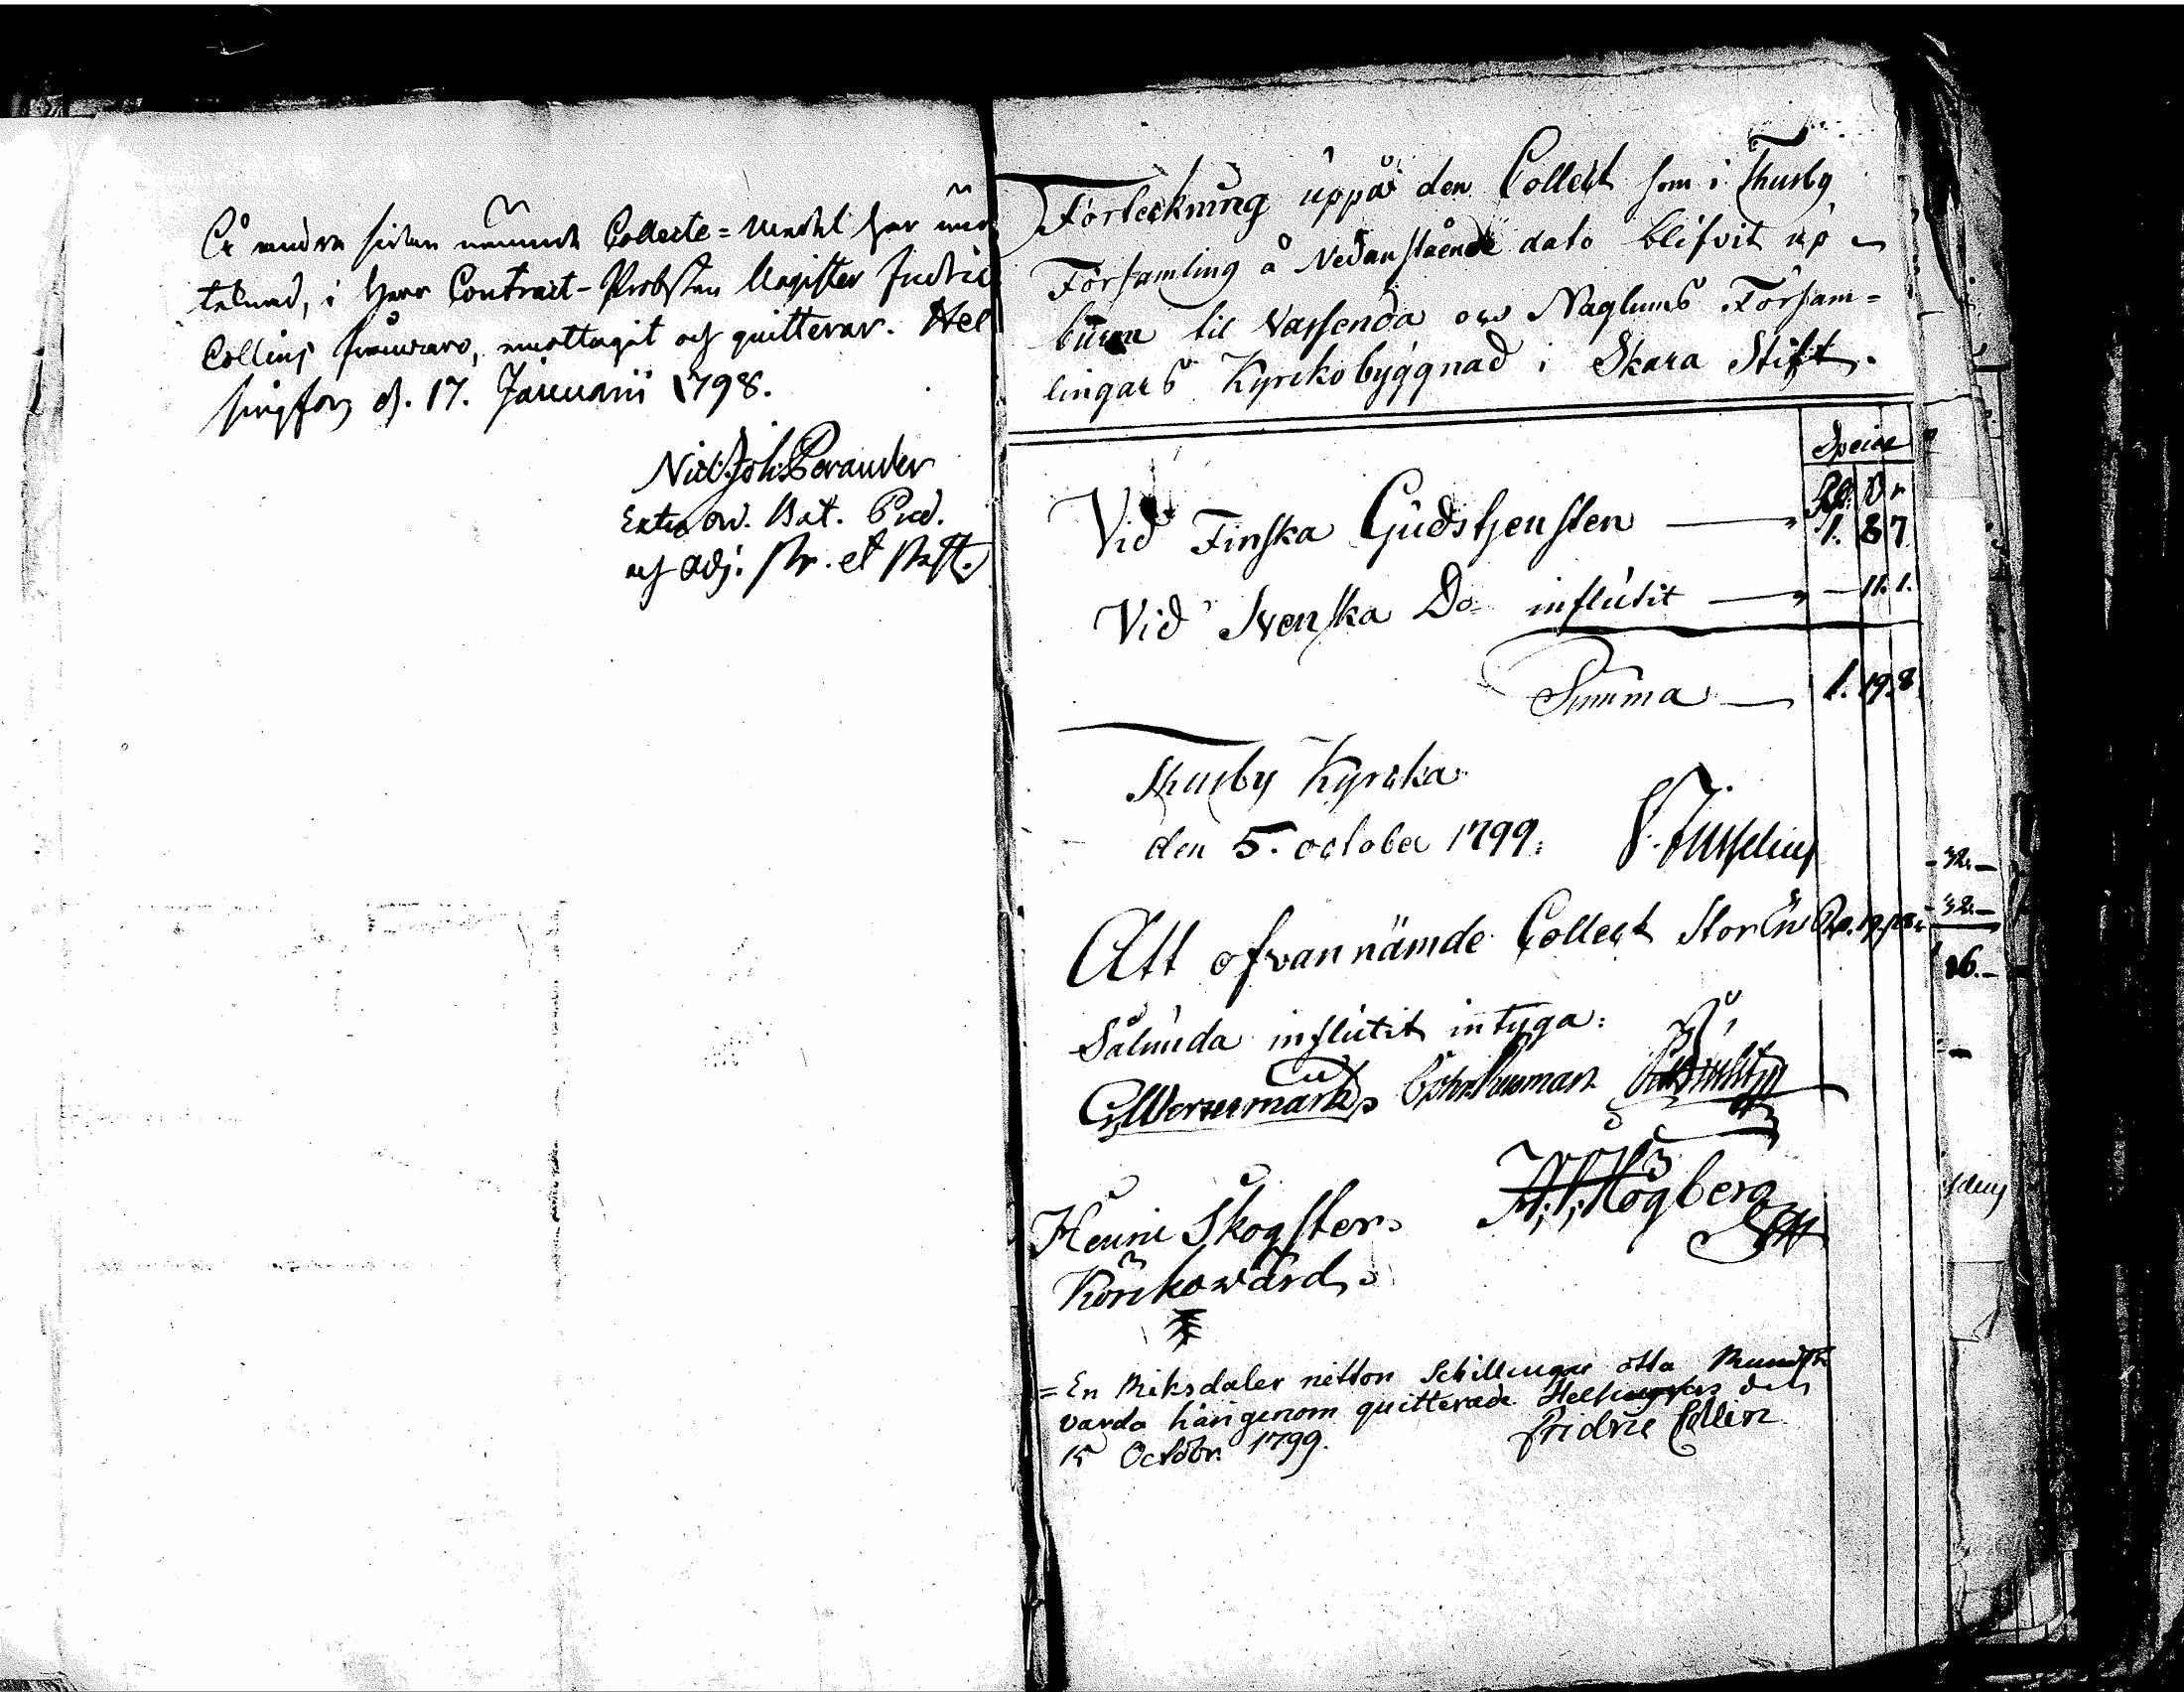 Å andra sidan nämnde Collecte-Medel har un
telnad, i Herr Contract-Probsten Magister Fredric
Collins frånwaro, emottagit och quitterar. Hel
singfors d. 17. Januarii 1798.
Nils Joh: Perander
Extra ord. Bat. Pred.
och Adj.
Förteckning uppå den Collect som i Thusby
Församling å Nedanstående dato blifvit up-
buren til Vassenda och Naglums Försam=
lingars Kyrckobyggnad i Skara Stift.
Specie
Vid Finska Gudstjensten 1. 8 7
Vid Svenska Do influtit — 11. 1.
Summa 1. 19. 8
Thusby Kyrcka
den 5. october 1799.
Att ofvannämde Collect Stor En Rd. 19. s. 8 r
Sålunda influtit intyga:
Henric Skogster A: Högberg
Körckowärd
= En Riksdaler nitton Schillingar otta Rundst
varda härigenom quitterade Helsingfors den
15 Octobr. 1799. Fredric Collin
32.—
32.—
16.—